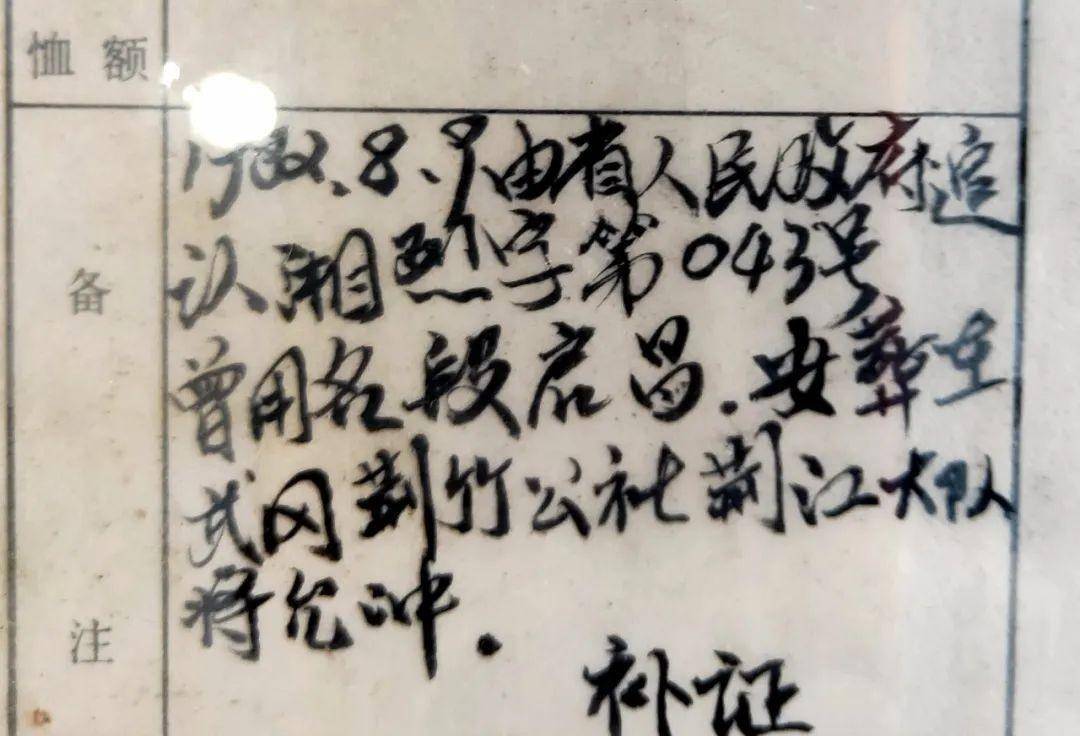 恤额
备注
1982.8.9由省人民政府追
认湘烈字第043号
曾用名段启昌.安葬在
武冈荆竹公社荆江大队
将允冲.
补证